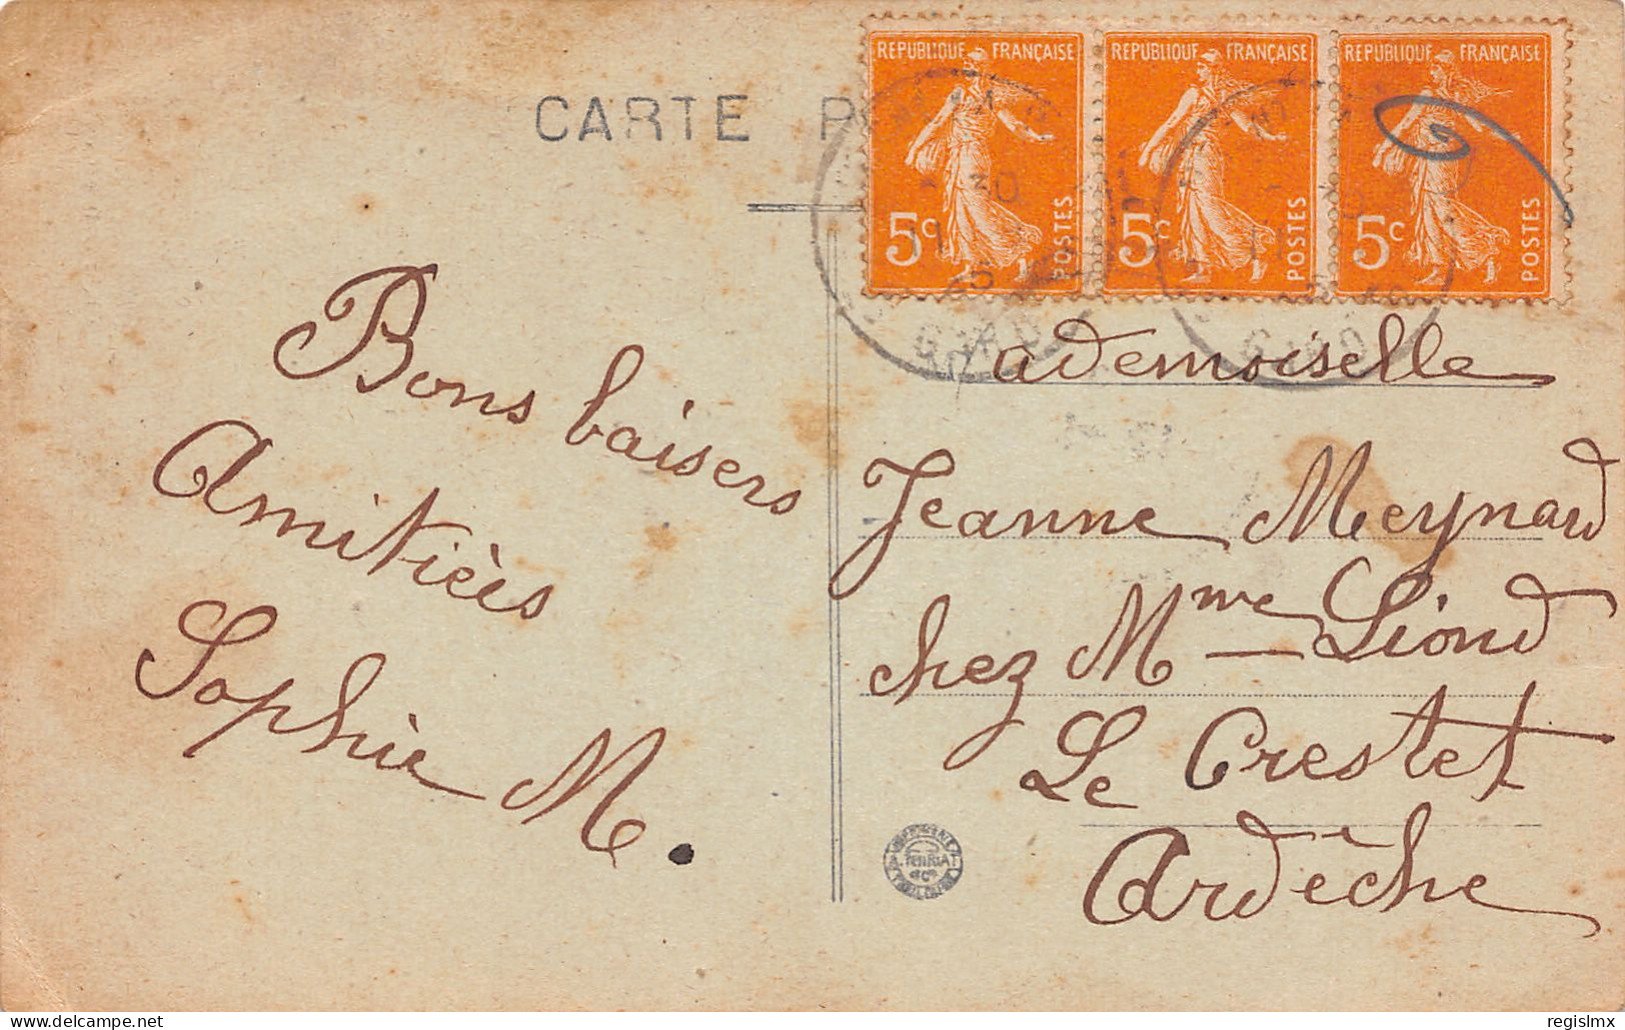 CARTE
REPUBLIQUE FRANÇAISE
5c POSTES
REPUBLIQUE FRANÇAISE
5c POSTES
REPUBLIQUE FRANÇAISE
5c POSTES
GARD
GARD
Bons baisers
Amitièes
Sophie M.
ademoiselle
Jeanne Meynard
chez Mme Liond
Le Crestet
Ardèche
delcampe.net
regislmx